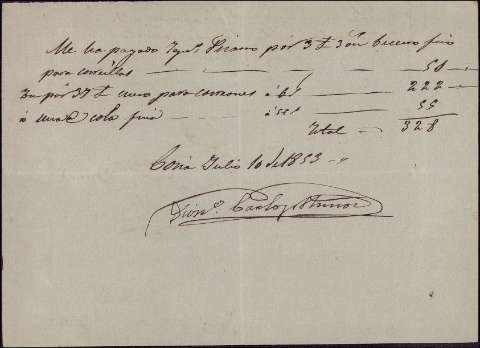 Me ha pagado Ygn.º por 3 ℔ 3 on becerro fino
para correillas — 50
Yd por 37 ℔ cuero para correones á 6 r — 222
cola fina — á seis — 56
Total — 328
Coria Julio 10 de 1853
Dion.º Carlos Muñoz